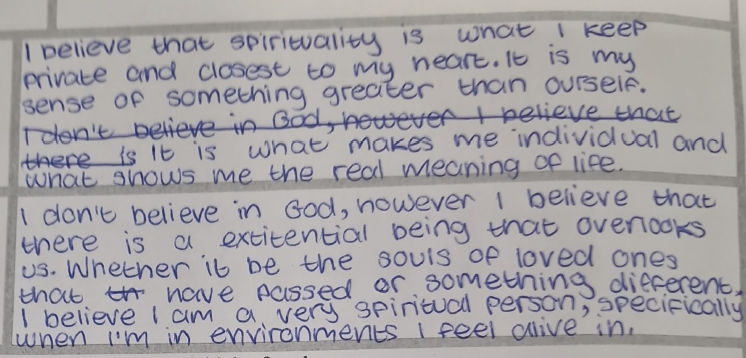 I believe that spirituality is what I keep
private and closest to my heart. It is my
sense of something greater than ourself.
I don't believe in God, however I believe that
there is It is what makes me individual and
what shows me the real meaning of life.
I don't believe in God, however I believe that
there is a extitential being that overlooks
us. Whether it be the souls of loved ones
that th have passed or something different,
I believe I am a very spiritual person, specifically
when I'm in environments I feel alive in.